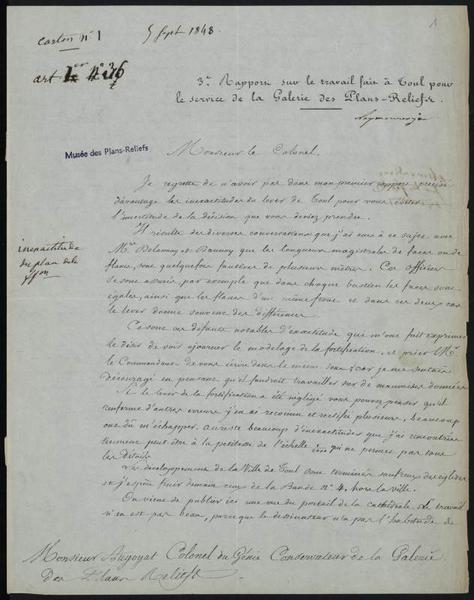 1
Carton n° 1
5 Sept 1848.
art 4 n° 36
3e Rapport sur le travail fait à Toul pour
le service de la Galerie des Plans-Reliefs.
Musée des Plans-Reliefs
Monsieur le Colonel,
Je regrette de n'avoir pas dans mon premier rapport précisé
davantage les inexactitudes du lever de Toul pour vous éviter
l'incertitude de la décision que vous deviez prendre.
Il résulte des diverses conversations que j'ai eues à ce sujet avec
inexactitude
du plan de la
Mrs Delannoy et que les longueurs magistrales de faces ou de
flancs, sont quelquefois fautives de plusieurs mètres. Ces officiers
se sont assurés, par exemple que dans chaque bastion les faces sont
égales, ainsi que les flancs d'un même front et dans ces deux cas
le lever donne souvent des différences.
Ce sont ces défauts notables d'exactitude qui m'ont fait exprimer
le désir de voir ajourner le modelage de la fortification, et prier Mr
le Commandant de vous écrire dans le même sens; car je me sentais
découragé en pensant qu'il faudrait travailler sur de mauvaises données
Si le lever de la fortification a été négligé vous pouvez penser qu'il
renferme d'autres erreurs j'en ai reconnu et rectifié plusieurs, beaucoup
ont dû m'échapper. au reste beaucoup d'inexactitudes que j'ai rencontrées
tiennent peut être à la petitesse de l'échelle qui ne permet pas tous
les détails.
Les développements de la Ville de Toul sont terminés sauf ceux des églises
et j'espère finir demain ceux de la Bande n° 4, hors la ville.
On vient de publier ici une vue du portail de la cathédrale. Le travail
n'en est pas beau, parce que le dessinateur n'a pas l'habitude de
Monsieur Augoyat Colonel du Génie Conservateur de la Galerie
des Plans Reliefs